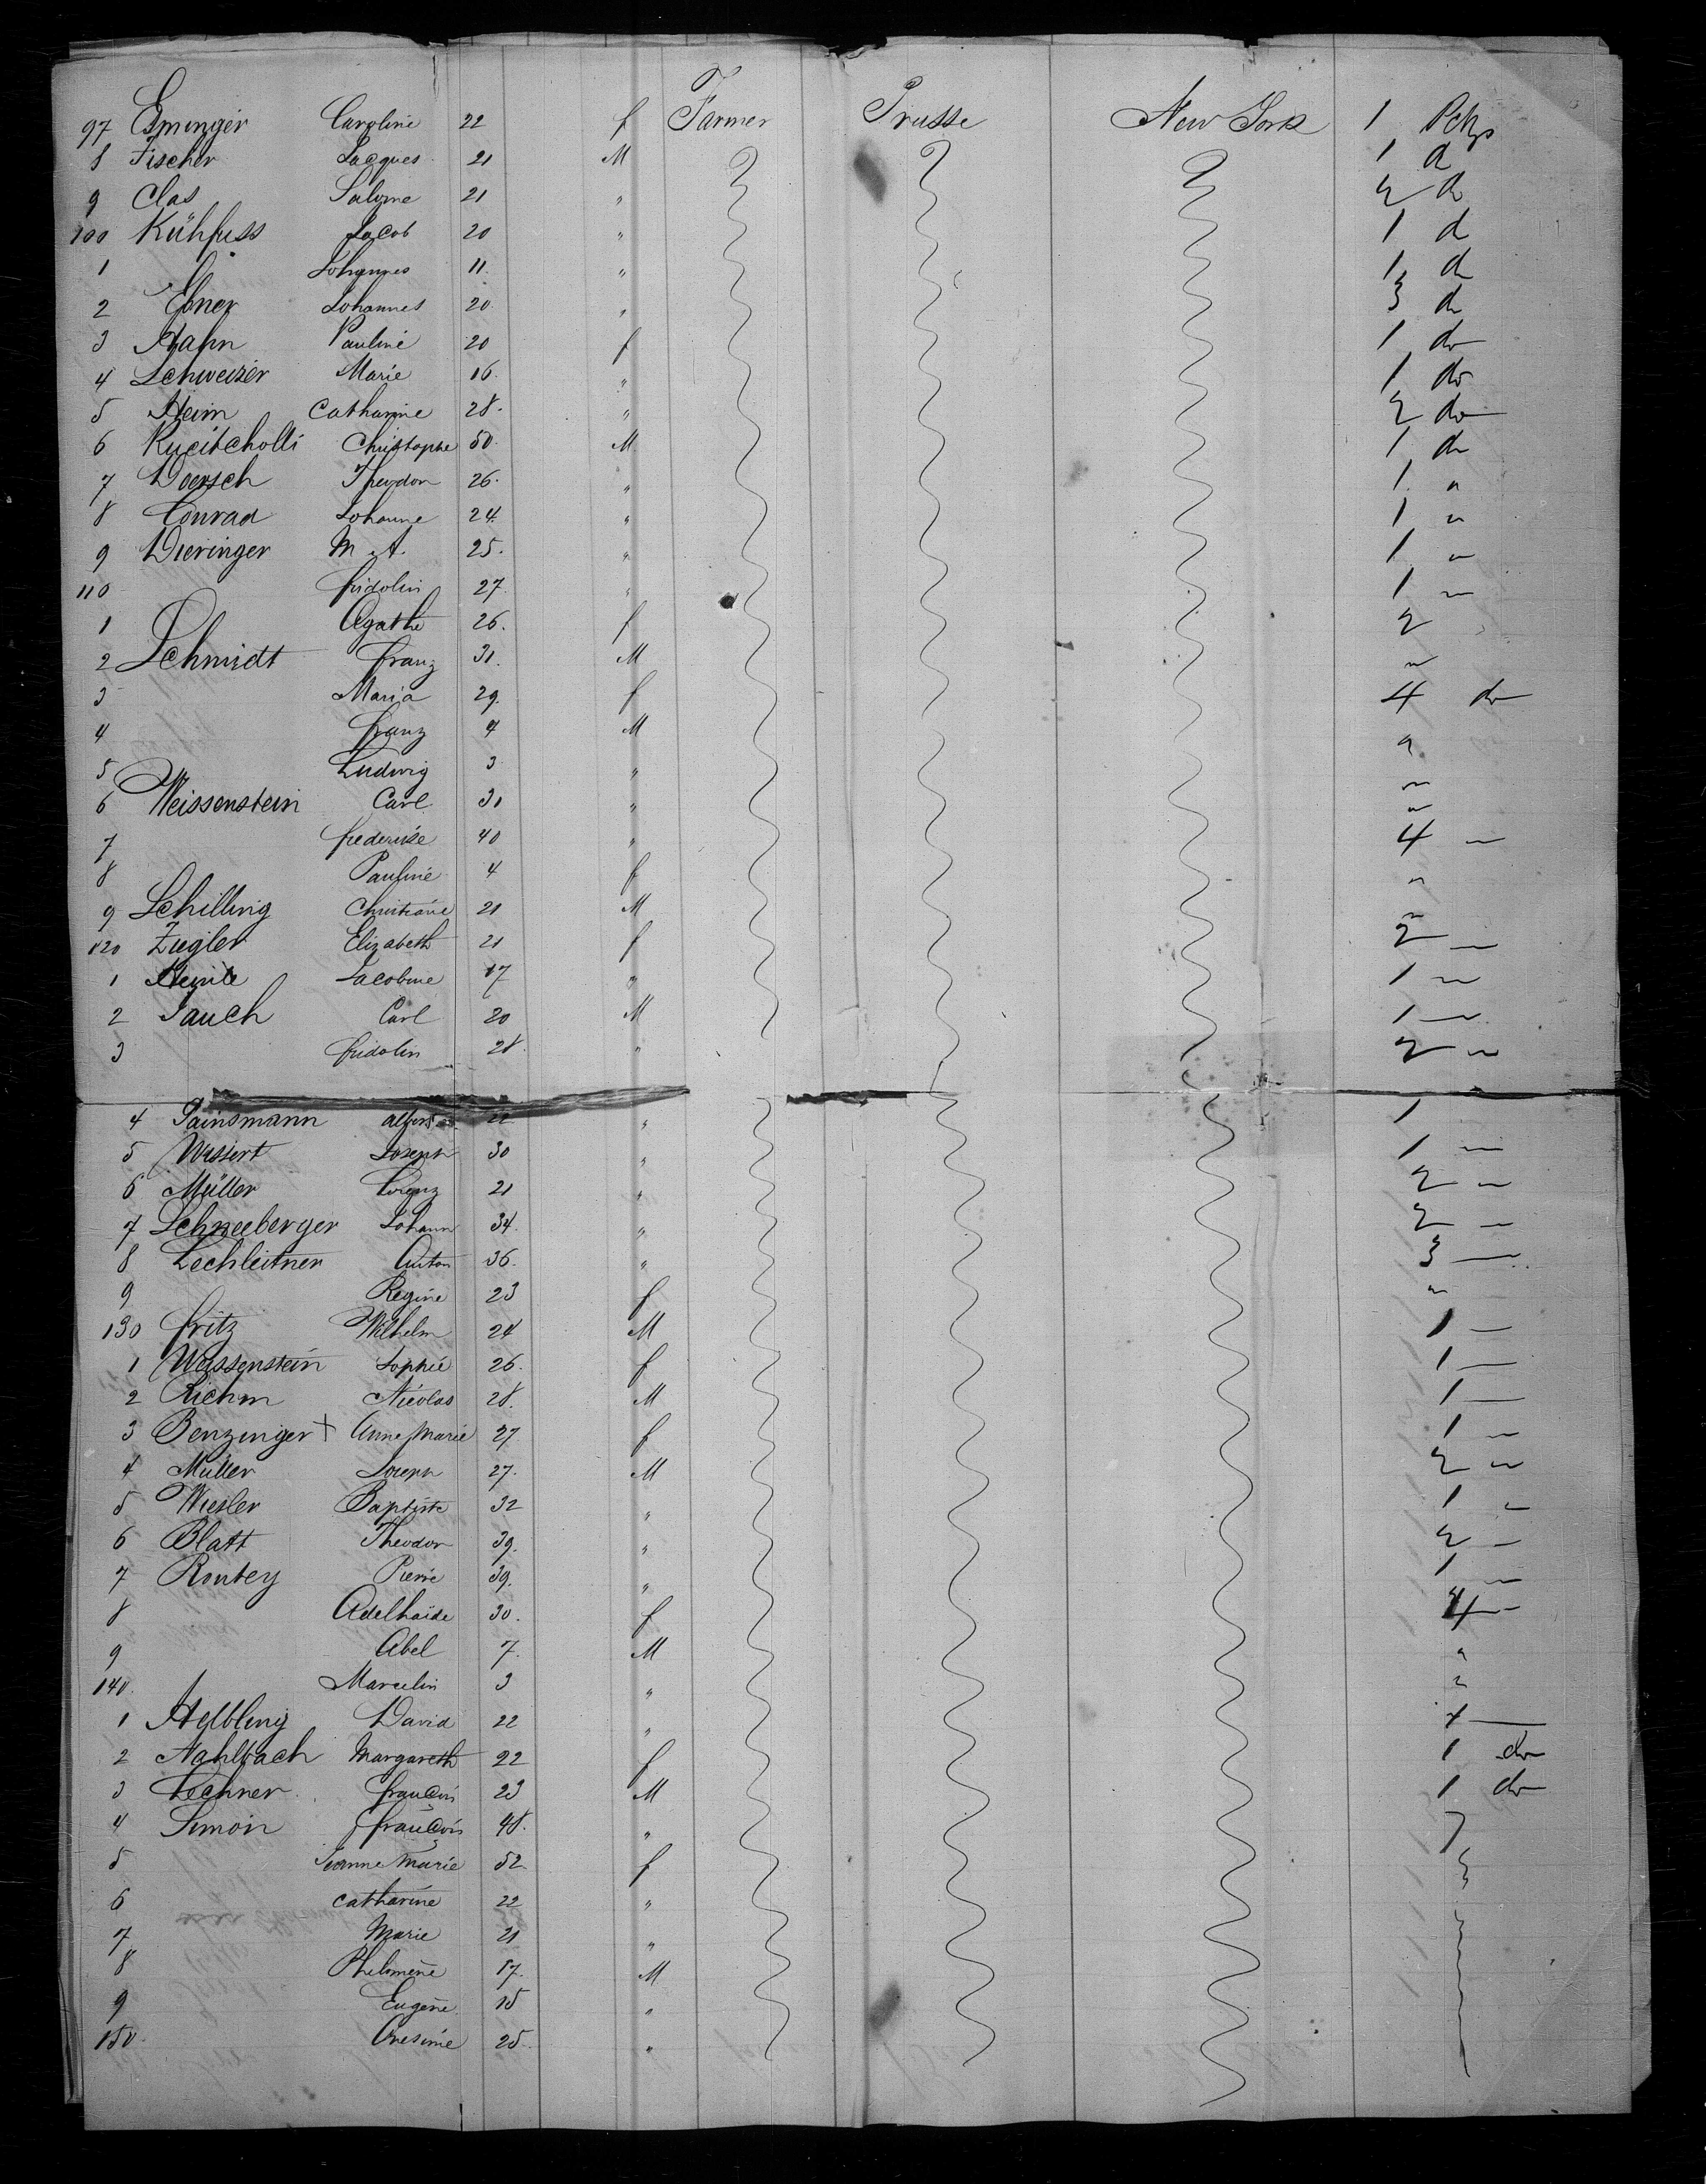 97 Esminger Caroline 22 f Farmer Prusse New York 1 Pckgs
8 Fischer Jacques 21 M 1 d
9 Clas Salome 21 " 2 do
100 Kühfuss Jacob 20 " 1 d
1 Johannes 11 " 1 d
2 Ebner Johannes 20 " 3 do
3 Hahn Pauline 20 f 1 do
4 Schweizer Marie 16 " 1 do
5 Heim Catharine 28 " 2 do
6 Christophe 50 M 1 do
7 Doersch Theodor 26 " 1 "
8 Conrad Johanne 24 " 1 "
9 Dieringer M. A. 25 " 1 "
110 fridolin 27 " 1 "
1 Agathe 26 f 2
2 Schmidt franz 31 M "
3 Maria 29 f 4 do
4 franz 4 M "
5 Ludwig 3 " "
6 Weissenstein Carl 31 " "
7 frederike 40 " 4 "
8 Pauline 4 f "
9 Schilling Christiane 21 M "
120 Ziegler Elizabeth 21 f 2 "
1 Jacobine 17 " 1 "
2 Jauch Carl 20 M 1 "
3 fridolin 28 " 2 "
4 Painsmann 22 " 1
5 Wissert Joseph 30 " 1 "
6 Müller Lorenz 21 " 2 "
7 Schneeberger Johann 34 " 2 "
8 Lechleitner Anton 36 " 3 "
9 Regine 23 f "
130 fritz Wilhelm 24 M 1 "
1 Weissenstein Sophie 26 f 1 "
2 Riehm Nicolas 28 M 1 "
3 Benzinger + Anne Marie 27 f 1 "
4 Müller Joseph 27 M 2 "
5 Wiesler Baptiste 32 " 1 "
6 Blatt Theodor 39 " 2 "
7 Routey Pierre 39 " 1 "
8 Adelhaide 30 f 4 "
9 Abel 7 M "
140 Marcelin 3 " "
1 Helbling David 22 " 1
2 Nahlbach Margareth 22 f 1 do
3 Lechner françois 23 M 1 do
4 Simon françois 48 " 7
5 Jeanne Marie 52 f
6 catharine 22 "
7 Marie 21 "
8 Phelomene 17 M
9 Eugene 15 "
150 Onesime 25 "